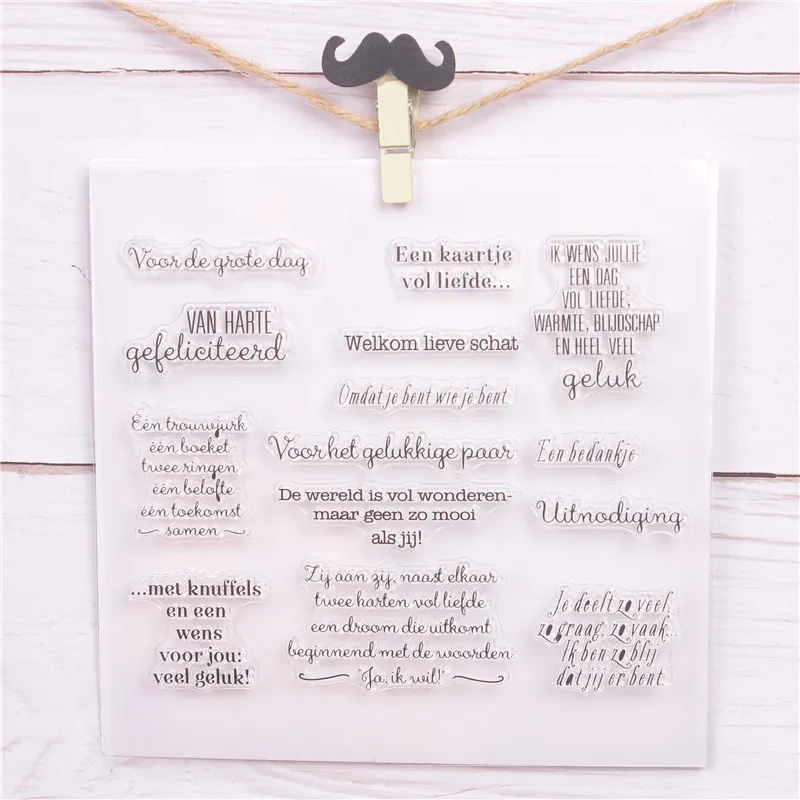 Voor de grote dag
Een kaartje
vol liefde...
IK WENS JULLIE
EEN DAG
VOL LIEFDE,
WARMTE, BLIJDSCHAP
EN HEEL VEEL
geluk
VAN HARTE
gefeliciteerd
Welkom lieve schat
Omdat je bent wie je bent.
Één trouwjurk
één boeket
twee ringen
één belofte
één toekomst
samen
Voor het gelukkige paar
Een bedankje
De wereld is vol wonderen-
maar geen zo mooi
als jij!
Uitnodiging
...met knuffels
en een
wens
voor jou:
veel geluk!
Zij aan zij, naast elkaar
twee harten vol liefde
een droom die uitkomt
beginnend met de woorden
"Ja, ik wil!"
Je deelt zo veel,
zo graag, zo vaak...
Ik ben zo blij
dat jij er bent.